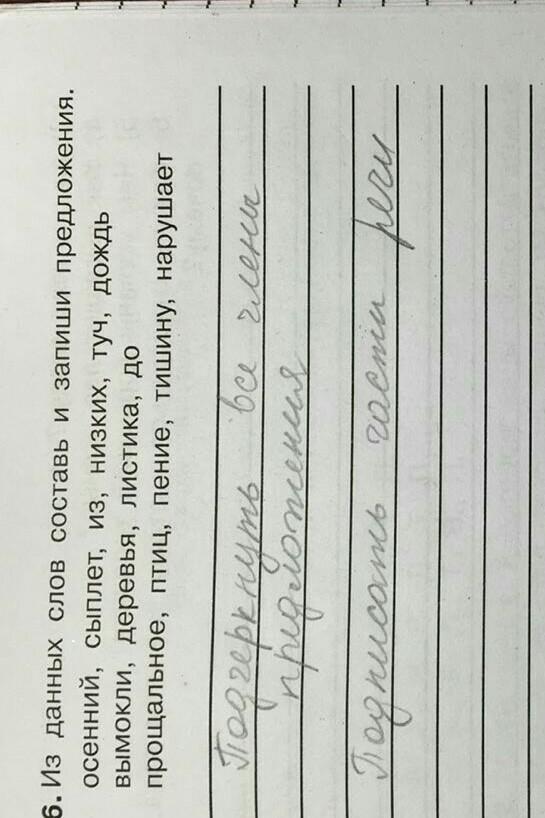 6. Из данных слов составь и запиши предложения.
осенний, сыплет, из, низких, туч, дождь
вымокли, деревья, листика, до
прощальное, птиц, пение, тишину, нарушает
Подчеркнуть все члены
предложения
Подписать части речи